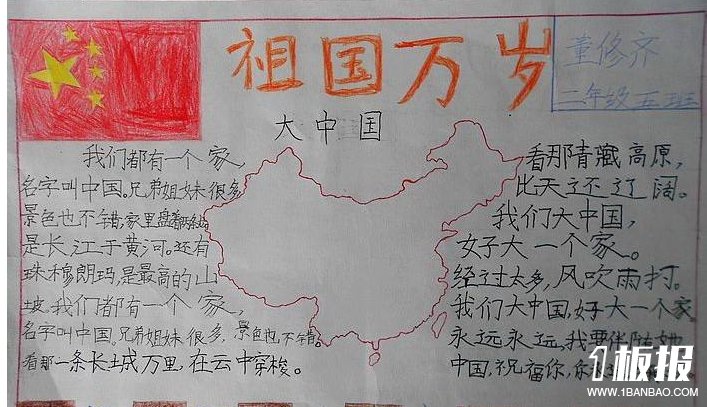 祖国万岁
董修齐
二年级五班
大中国
我们都有一个家，
名字叫中国。兄弟姐妹很多，
景色也不错，家里盘着两条
是长江于黄河。还有
珠穆朗玛，是最高的山
坡。我们都有一个家，
名字叫中国。兄弟姐妹很多，景色也不错。
看那一条长城万里，在云中穿梭。
看那青藏高原，
比天还辽阔。
我们大中国，
女子大一个家。
经过太多，风吹雨打。
我们大中国，好大一个家
永远永远，我要伴随她
中国，祝福你，
1板报
WWW.1BANBAO.COM